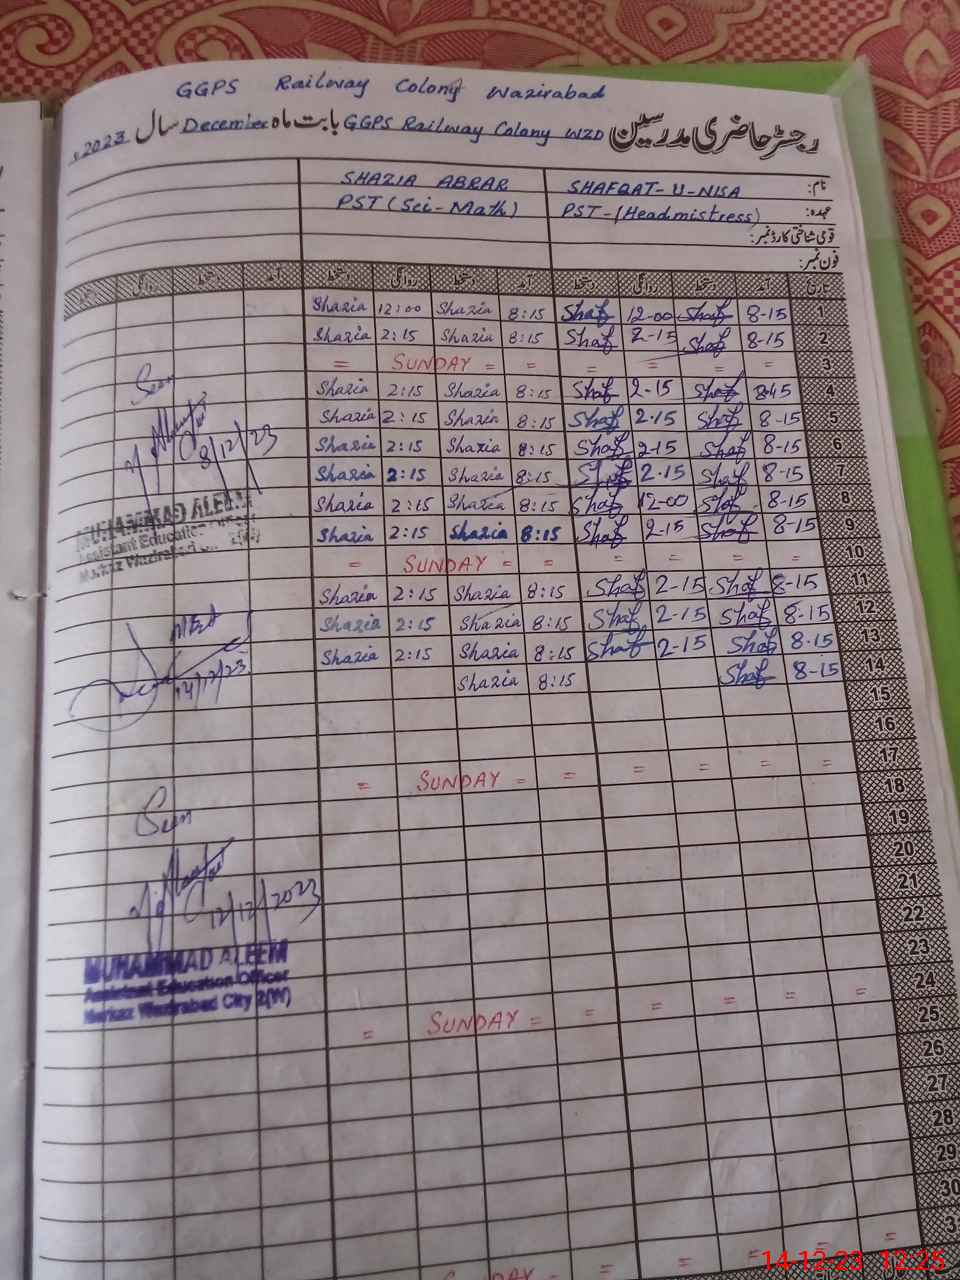 GGPS Railway Colony Wazirabad
رجسٹر حاضری مدرسین GGPS Railway Colony WZD بابت ماہ December سال 2023ء
نام: SHAFQAT-U-NISA SHAZIA ABRAR
عہدہ: PST-(Headmistress) PST (Sci-Math)
قومی شناختی کارڈ نمبر:
فون نمبر:
تاریخ آمد دستخط روانگی دستخط آمد دستخط روانگی دستخط آمد دستخط روانگی دستخط
1 8-15 Shaf 12-00 Shaf 8:15 Shazia 12:00 Shazia
2 8-15 Shaf 2-15 Shaf 8:15 Shazia 2:15 Shazia
3 = = = = = SUNDAY =
4 Shaf 2-15 Shaf 8:15 Shazia 2:15 Shazia
5 8-15 Shaf 2-15 Shaf 8:15 Shazia 2:15 Shazia
6 8-15 Shaf 2-15 Shaf 8:15 Shazia 2:15 Shazia
7 8-15 Shaf 2-15 Shaf 8:15 Shazia 2:15 Shazia
8 8-15 Shaf 12-00 Shaf 8:15 Shazia 2:15 Shazia
9 8-15 Shaf 2-15 Shaf 8:15 Shazia 2:15 Shazia
10 = = = = = = SUNDAY =
11 8-15 Shaf 2-15 Shaf 8:15 Shazia 2:15 Shazia
12 8-15 Shaf 2-15 Shaf 8:15 Shazia 2:15 Shazia
13 8-15 Shaf 2-15 Shaf 8:15 Shazia 2:15 Shazia
14 8-15 Shaf 8:15 Shazia
15
16
17 = = = = = = SUNDAY =
18
19
20
21
22
23
24 = = = = = = SUNDAY =
25
26
27
28
29
30
3
= = = = = SUNDAY
Seen
8/12/23
MUHAMMAD ALEEM
Assistant Education
Markaz Wazirabad
MEA
14/12/23
Seen
12/12/2023
MUHAMMAD ALEEM
Assistant Education Officer
Markaz Wazirabad City 2(W)
14-12-23 12:25